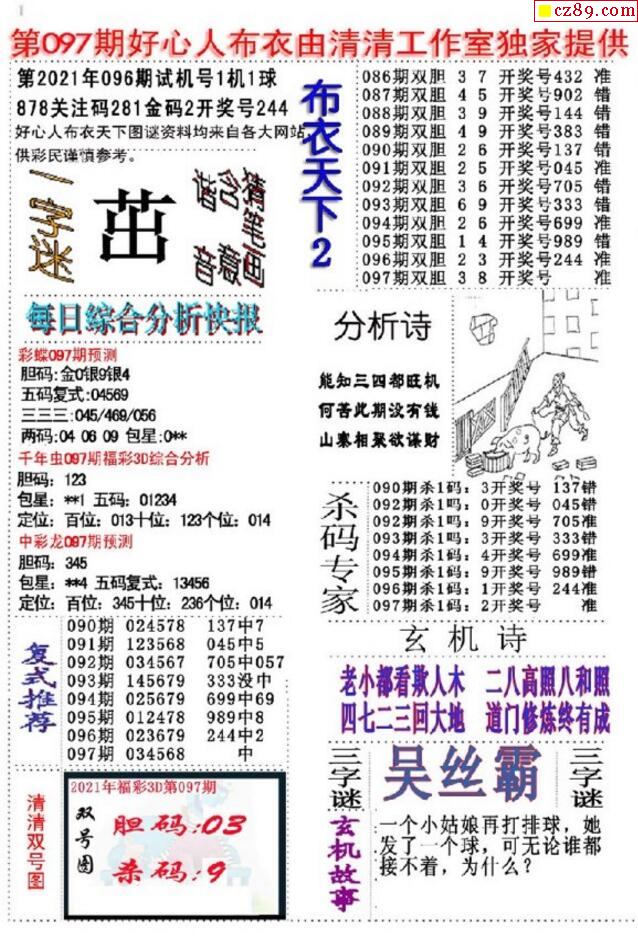 cz89.com
第097期好心人布衣由清清工作室独家提供
第2021年096期试机号1机1球
878关注码281金码2开奖号244
好心人布衣天下图谜资料均来自各大网站,
供彩民谨慎参考。
一字迷
茁
谐音
含意
猜笔画
每日综合分析快报
彩蝶097期预测
胆码:金0银9银4
五码复式:04569
三三三:045/469/056
两码:04 06 09 包星:0**
千年虫097期福彩3D综合分析
胆码: 123
包星: **1 五码: 01234
定位: 百位: 013十位: 123个位: 014
中彩龙097期预测
胆码: 345
包星: **4 五码复式: 13456
定位: 百位: 345十位: 236个位: 014
复式推荐
090期 024578 137中7
091期 123568 045中5
092期 034567 705中057
093期 145679 333没中
094期 025679 699中69
095期 012478 989中8
096期 023679 244中2
097期 034568 中
清清双号图
2021年福彩3D第097期
双号图
胆码:03
杀码:9
布衣天下2
086期双胆 3 7 开奖号432 准
087期双胆 4 5 开奖号902 错
088期双胆 3 9 开奖号144 错
089期双胆 4 9 开奖号383 错
090期双胆 2 6 开奖号137 错
091期双胆 2 5 开奖号045 准
092期双胆 3 6 开奖号705 错
093期双胆 6 9 开奖号333 错
094期双胆 2 6 开奖号699 准
095期双胆 1 4 开奖号989 错
096期双胆 2 3 开奖号244 准
097期双胆 3 8 开奖号 准
分析诗
能知三四都旺机
何苦此期没有钱
山寨相聚欲谋财
杀码专家
090期杀1码: 3开奖号 137错
092期杀1吗: 0开奖号 045错
092期杀1吗: 9开奖号 705准
093期杀1码: 3开奖号 333错
094期杀1码: 4开奖号 699准
095期杀1码: 9开奖号 989错
096期杀1码: 1开奖号 244准
097期杀1码: 2开奖号 准
玄机诗
老小都看欺人木 二八高照八和照
四七二三回大地 道门修炼终有成
三字谜
吴丝霸
三字谜
玄机故事
一个小姑娘再打排球，她
发了一个球，可无论谁都
接不着，为什么？